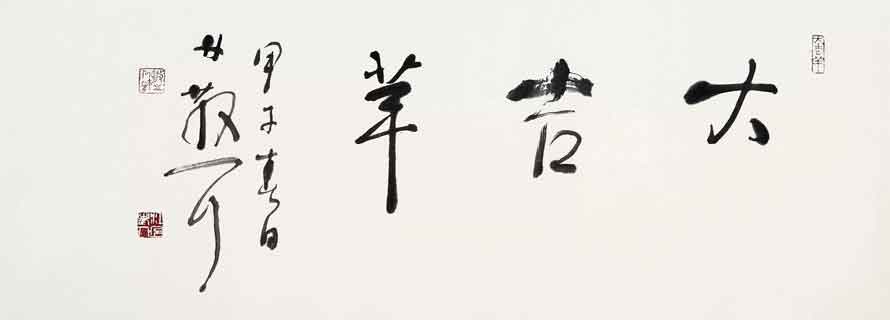 大吉羊
甲子春日
林散耳